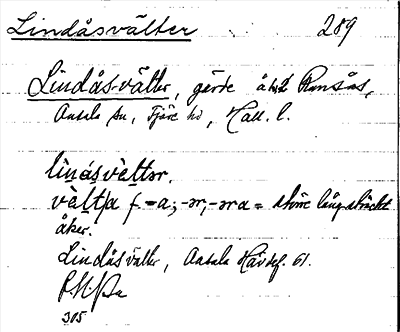 Lindåsvälter 289
Lindåsvälter, gärde å Ramsås,
Onsala sn, Fjäre hd, Hall. l.
linåsvèltər.
vèlt/a f -a; -ər, -əra = större långsträckt
åker.
Lindåsvälter, Onsala Hävdef. 61.
305